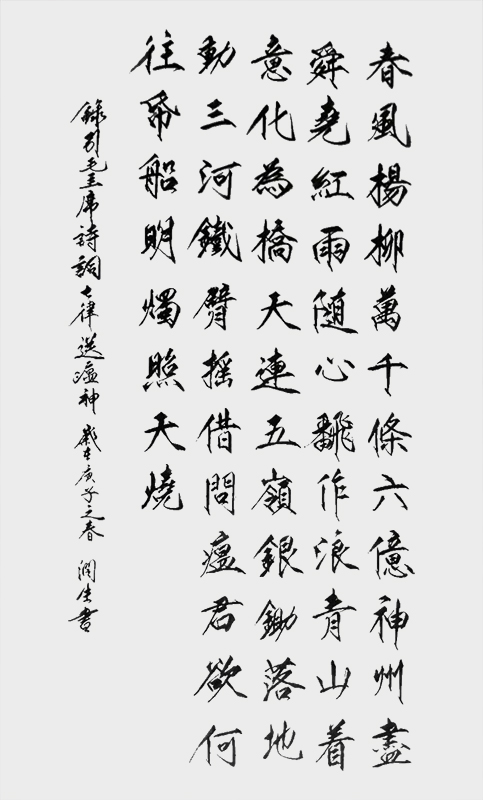 春風楊柳萬千條六億神州盡
舜堯紅雨随心飜作浪青山着
意化為橋天連五嶺銀鋤落地
動三河鐵臂摇借問瘟君欲何
往帋船明燭照天燒
錄引毛主席詩詞七律送瘟神 歲在庚子之春 潤生書